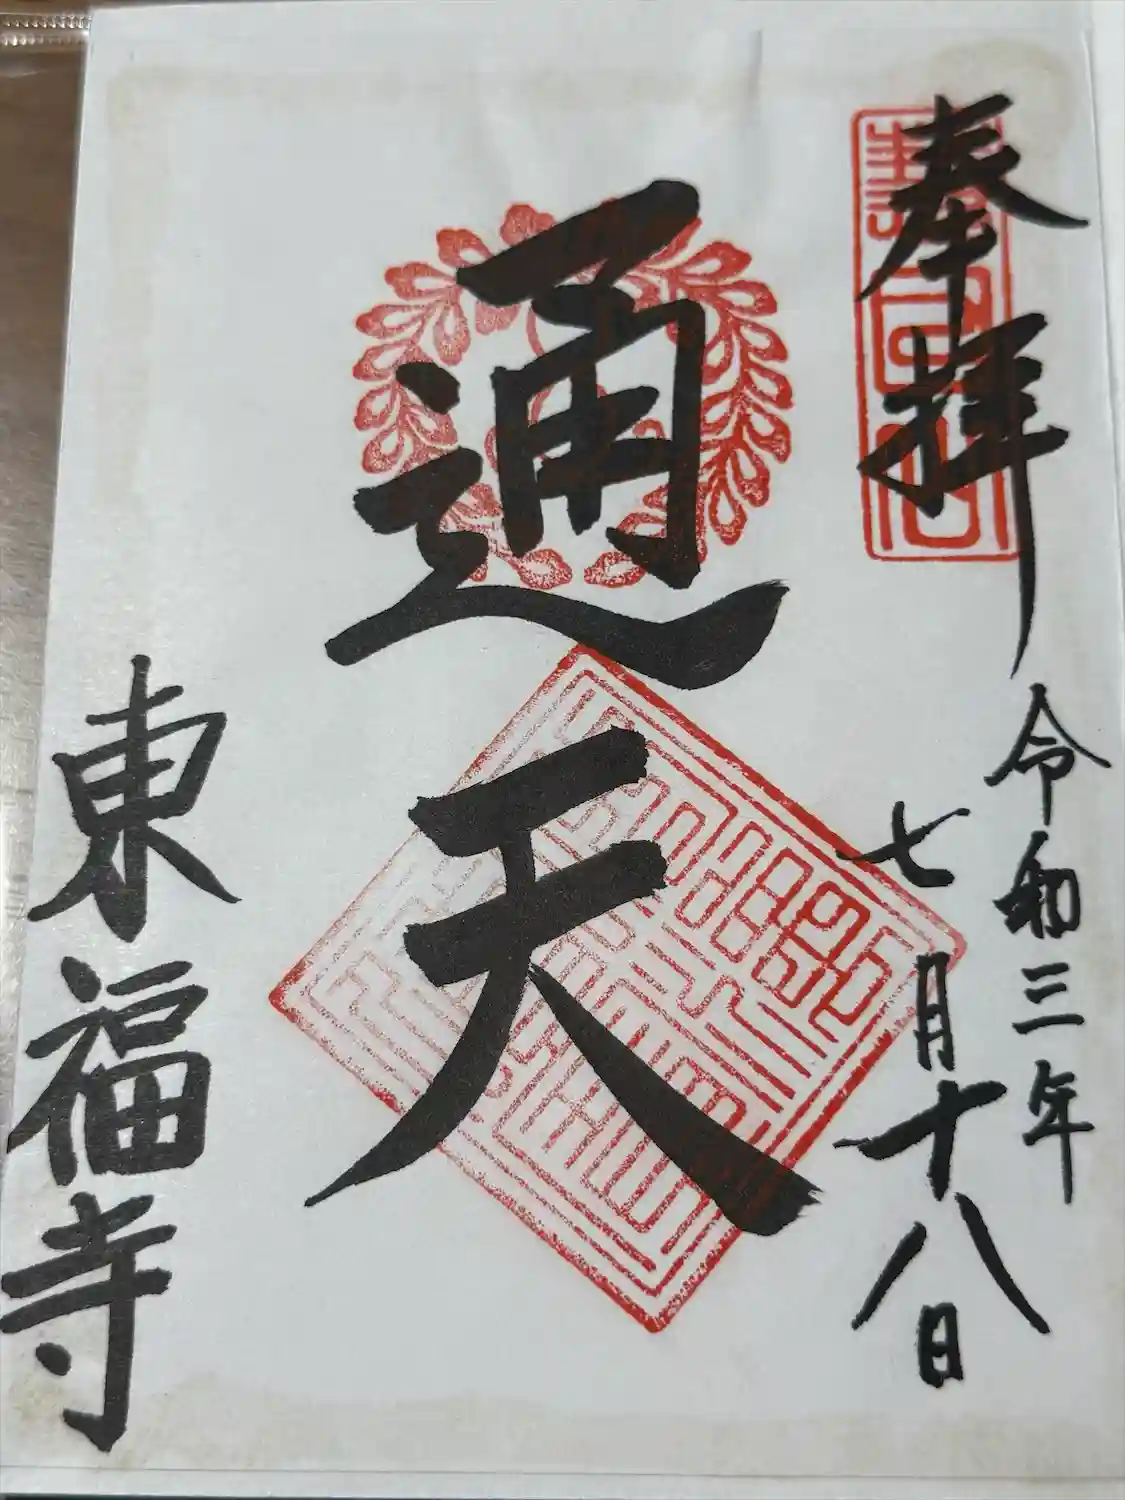 奉拝
令和三年
七月十八日
通天
東福寺